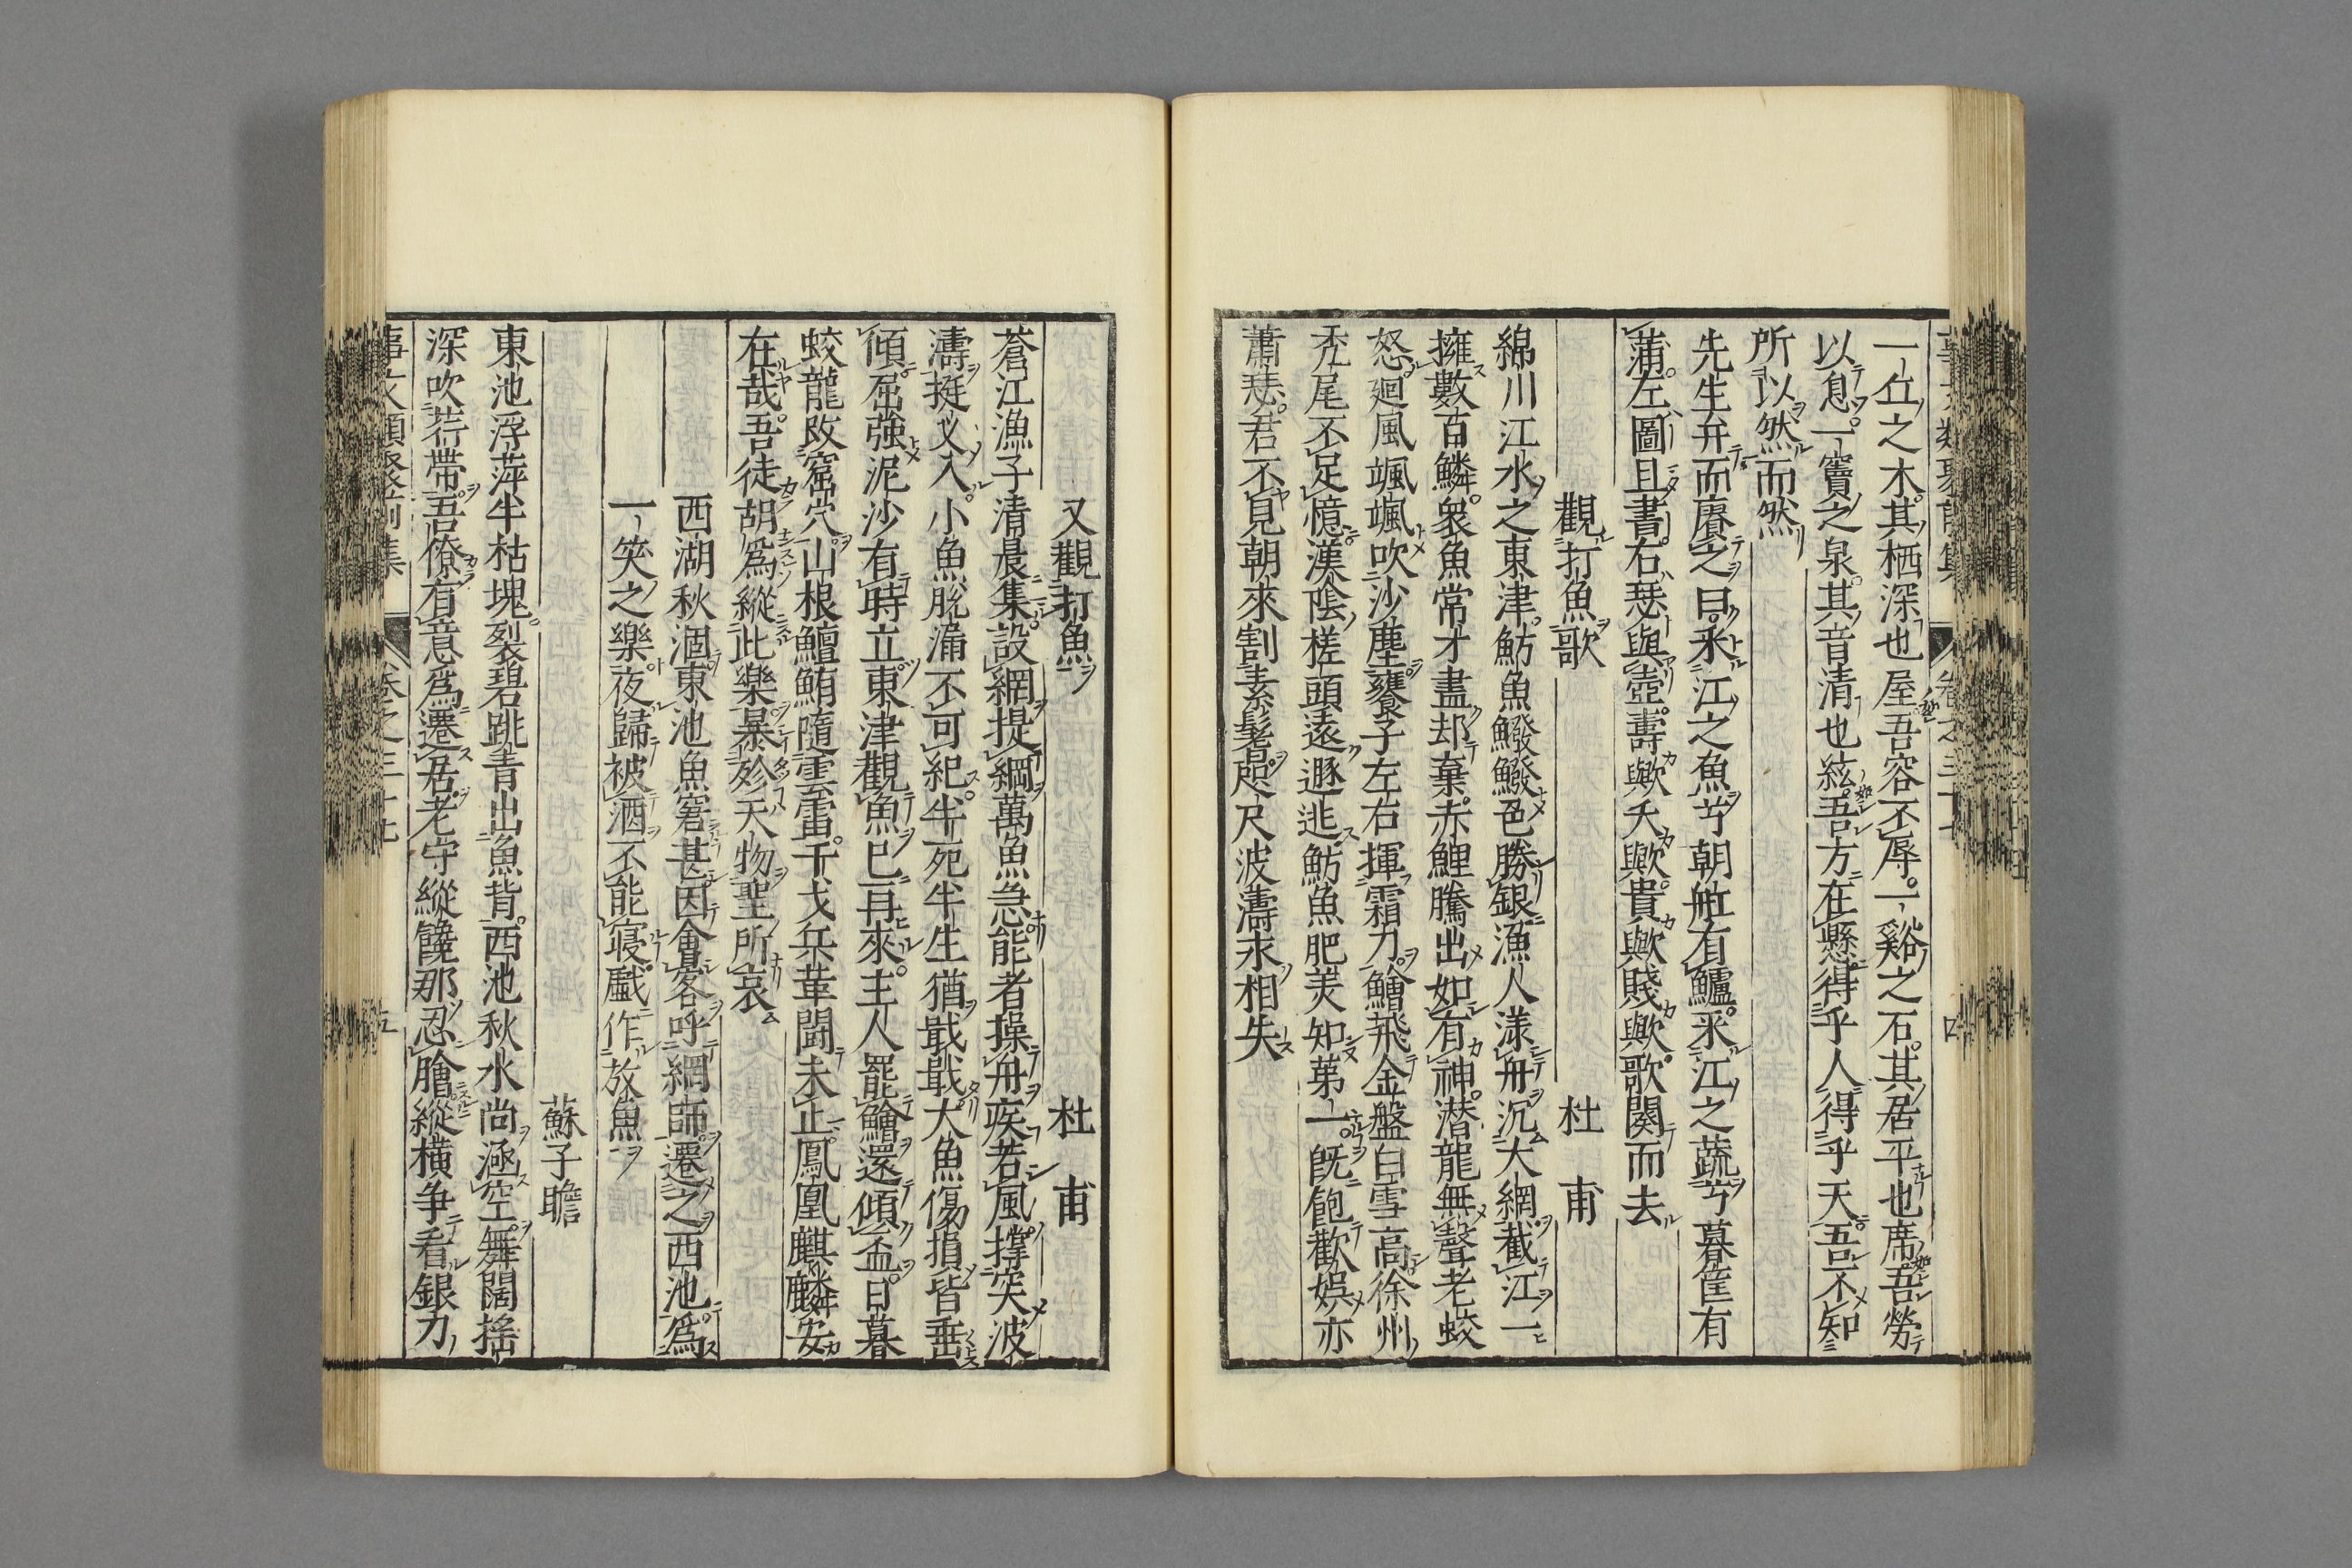 一丘之木其栖深也屋吾容不辱一谿之石其居平也席吾勞
以息一竇之泉其音清也絃吾方在懸得乎人得乎天吾不知
所以然而然
先生弁而賡之曰采江之魚兮朝舡有鱸采江之蔬兮暮筐有
蒲左圖且書右琴與壺壽歟夭歟貴歟賤歟歌闋而去
觀打魚歌　杜甫
綿川江水之東津魴魚鱍鱍色勝銀漁人漾舟沉大網截江一
擁數百鱗衆魚常才盡却棄赤鯉騰出如有神潜龍無聲老蛟
怒廻風颯颯吹沙塵饔子左右揮霜刀鱠飛金盤白雪高徐州
禿尾不足憶漢陰槎頭遠遯逃魴魚肥美知第一既飽歡娛亦
蕭瑟君不見朝來割素鬐咫尺波濤永相失
又觀打魚　杜甫
蒼江漁子清晨集設網提綱萬魚急能者操舟疾若風撐突波
濤挺义入小魚脫漏不可紀半死半生猶戢戢大魚傷損皆垂
傾屈強泥沙有時立東津觀魚已再來主人罷鱠還傾盃日暮
蛟龍改窟穴山根鱣鮪隨雲雷干戈兵革闘未止鳳凰麒麟安
在哉吾徒胡爲縱此樂暴殄天物聖所哀
西湖秋涸東池魚窘甚因會客呼網師遷之西池爲
一笑之樂夜歸被酒不能寢戲作放魚
蘇子瞻
東池浮萍半枯塊裂碧跳青出魚背西池秋水尚涵空舞闊搖
深吹荇帶吾僚有意爲遷居老守縱饞那忍膾縱橫争看銀刀
事文類聚前集　卷之三十七　五